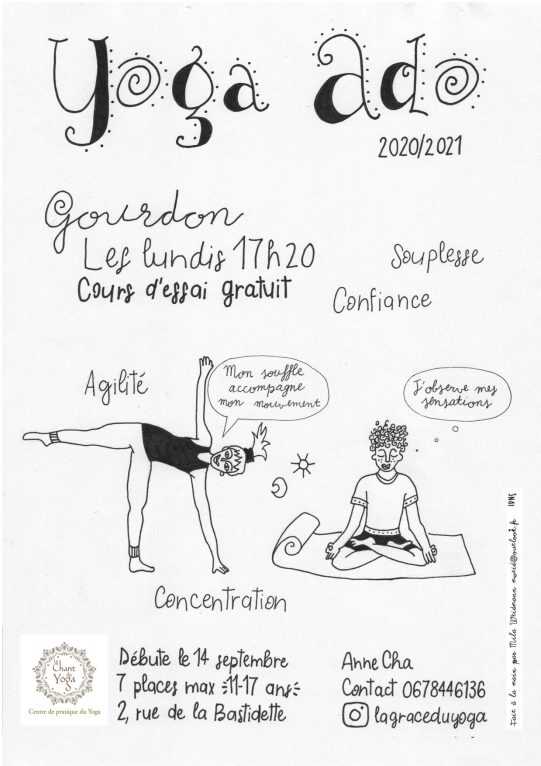 Yoga Ado
2020/2021
Gourdon
Les lundis 17h20
Cours d'essai gratuit
Souplesse
Confiance
Agilité
Mon souffle
accompagne
mon mouvement
J'observe mes
sensations
Concentration
Chant
Yoga
Centre de pratique du Yoga
Débute le 14 septembre
7 places max 11-17 ans
2, rue de la Bastidette
Anne Cha
Contact 0678446136
lagraceduyoga
Fait à la main par
IPNS